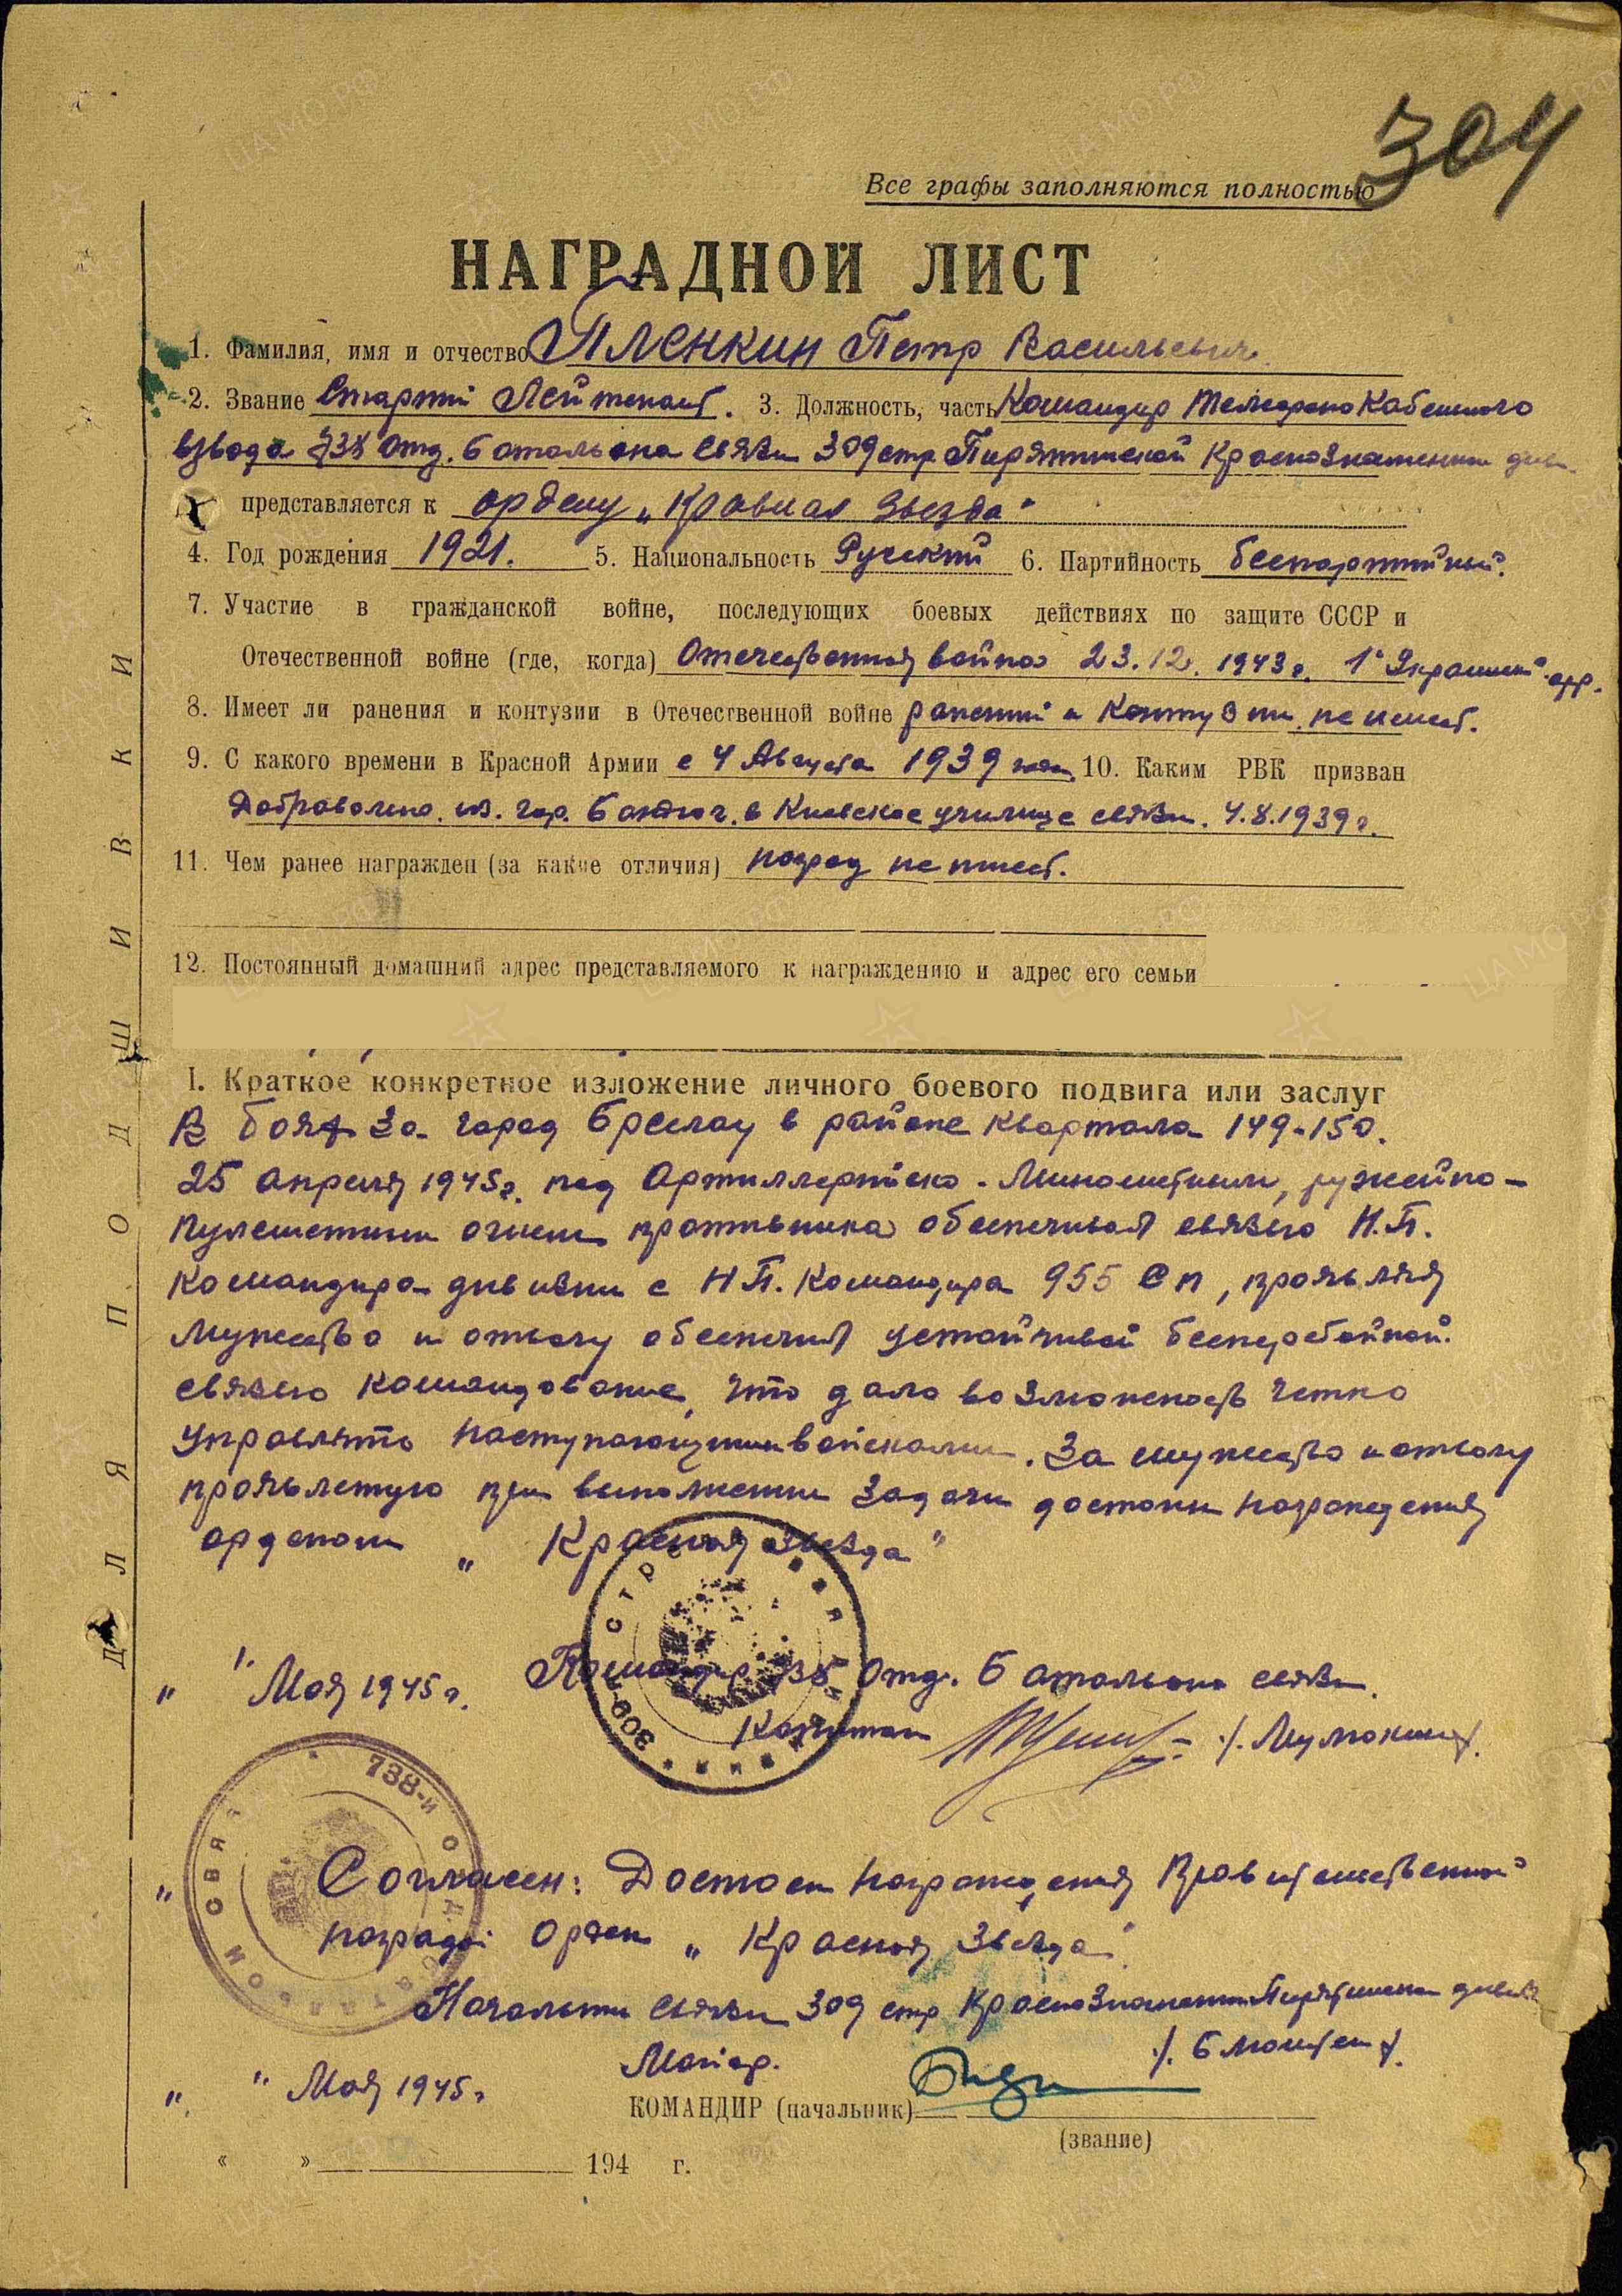 304
Все графы заполняются полностью
НАГРАДНОЙ ЛИСТ
1. Фамилия, имя и отчество Пленкин Петр Васильевич
2. Звание Старший Лейтенант. 3. Должность, часть Командир Телеграфно Кабельного
взвода 738 Отд. Батальона Связи 309 стр Пирятинской Краснознаменной див.
представляется к ордену „Красная Звезда"
4. Год рождения 1921. 5. Национальность Русский 6. Партийность беспартийный.
7. Участие в гражданской войне, последующих боевых действиях по защите СССР и
Отечественной войне (где, когда) Отечественная война 23.12.1943 г. 1й Украинский фр.
8. Имеет ли ранения и контузии в Отечественной войне ранений и контузии не имеет.
9. С какого времени в Красной Армии с 4 Августа 1939 года 10. Каким РВК призван
Добровольно. из. гор. в Киевское училище связи. 4.8.1939 г.
11. Чем ранее награжден (за какие отличия) наград не имеет.
12. Постоянный домашний адрес представляемого к награждению и адрес его семьи
I. Краткое конкретное изложение личного боевого подвига или заслуг
В боях за город Бреслау в районе квартала 149-150.
25 апреля 1945г. под Артиллерийско-Минометным, ружейно-
пулеметным огнем противника обеспечивал связью Н.П.
командира дивизии с Н.П. Командира 955 СП, проявляя
мужество и отвагу обеспечил устойчивой бесперебойной
связью командование, что дало возможность четко
управлять наступающими войсками. За мужество и отвагу
проявленную при выполнении задачи достоин награждения
орденом „Красная Звезда"
„ " Мая 1945 г. Командир 738 Отд. Батальона связи.
Капитан /. Мулюкин /.
309-я стр
738-й О БАТАЛЬОН СВЯ
„ Согласен: Достоен награждения Правительственной
наградой Орден „Красная Звезда"
Начальник Связи 309 стр Краснознаменной Пирятинской дивизии
Майор. /. /.
„ " Мая 1945 г
КОМАНДИР (начальник)
(звание)
« » 194 г.
ДЛЯ ПОДШИВКИ
ЦА МО РФ